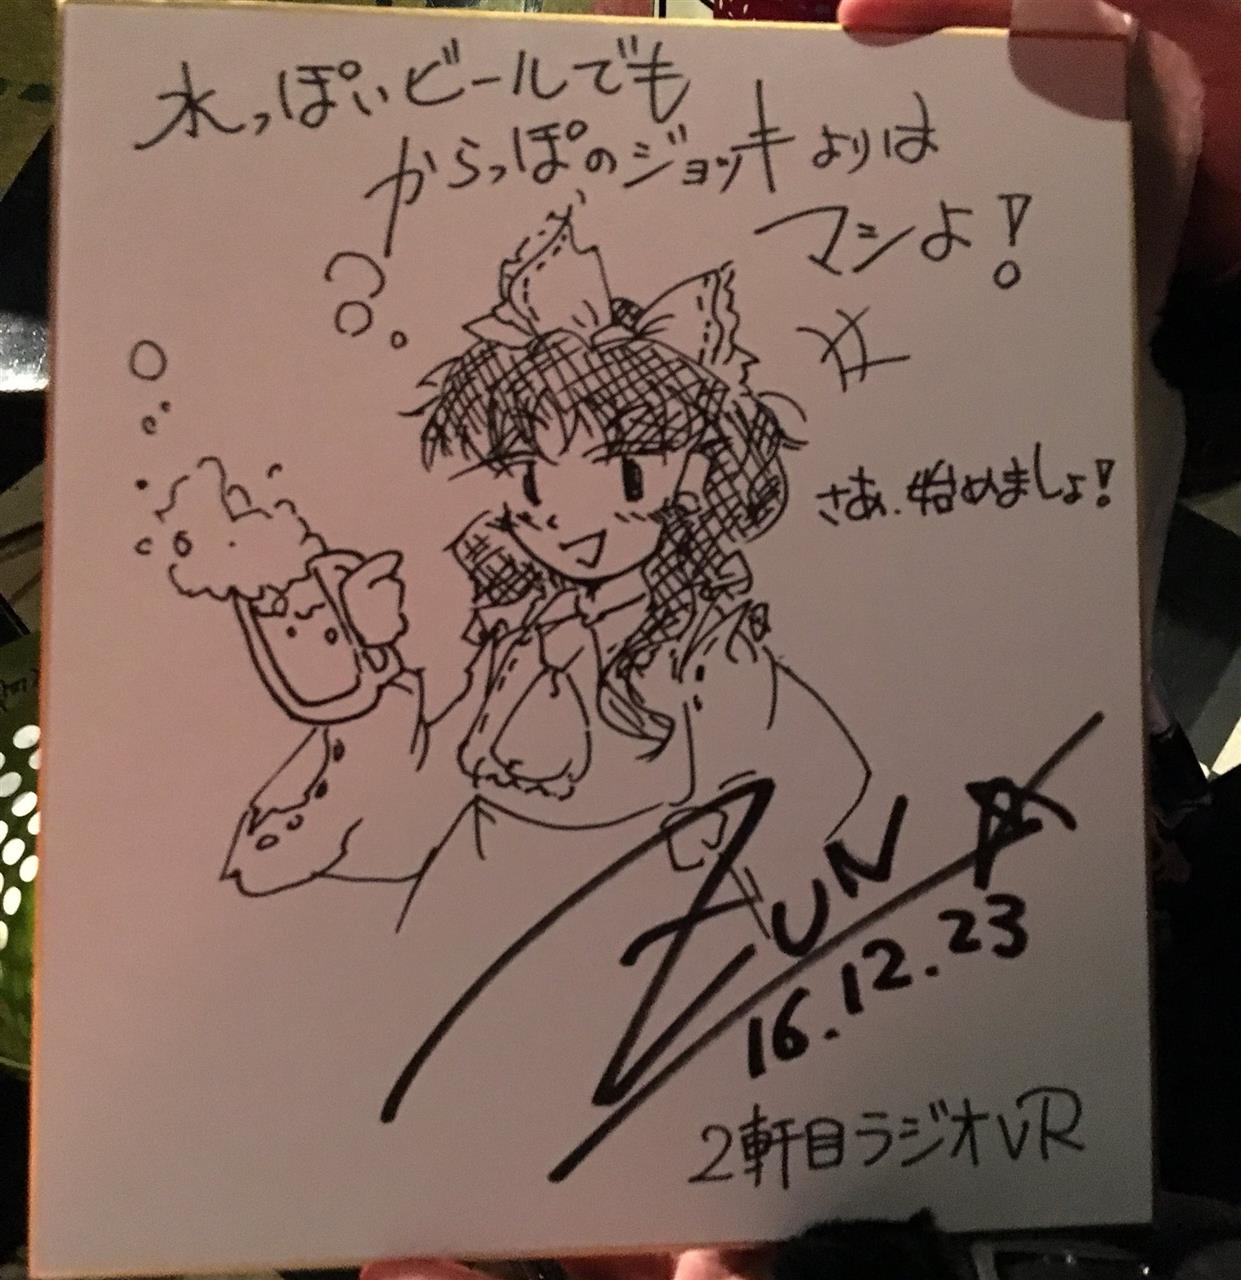 水っぽいビールでも
からっぽのジョッキよりは
マシよ!
さぁ、始めましょ!
ZUN
16.12.23
2軒目ラジオVR